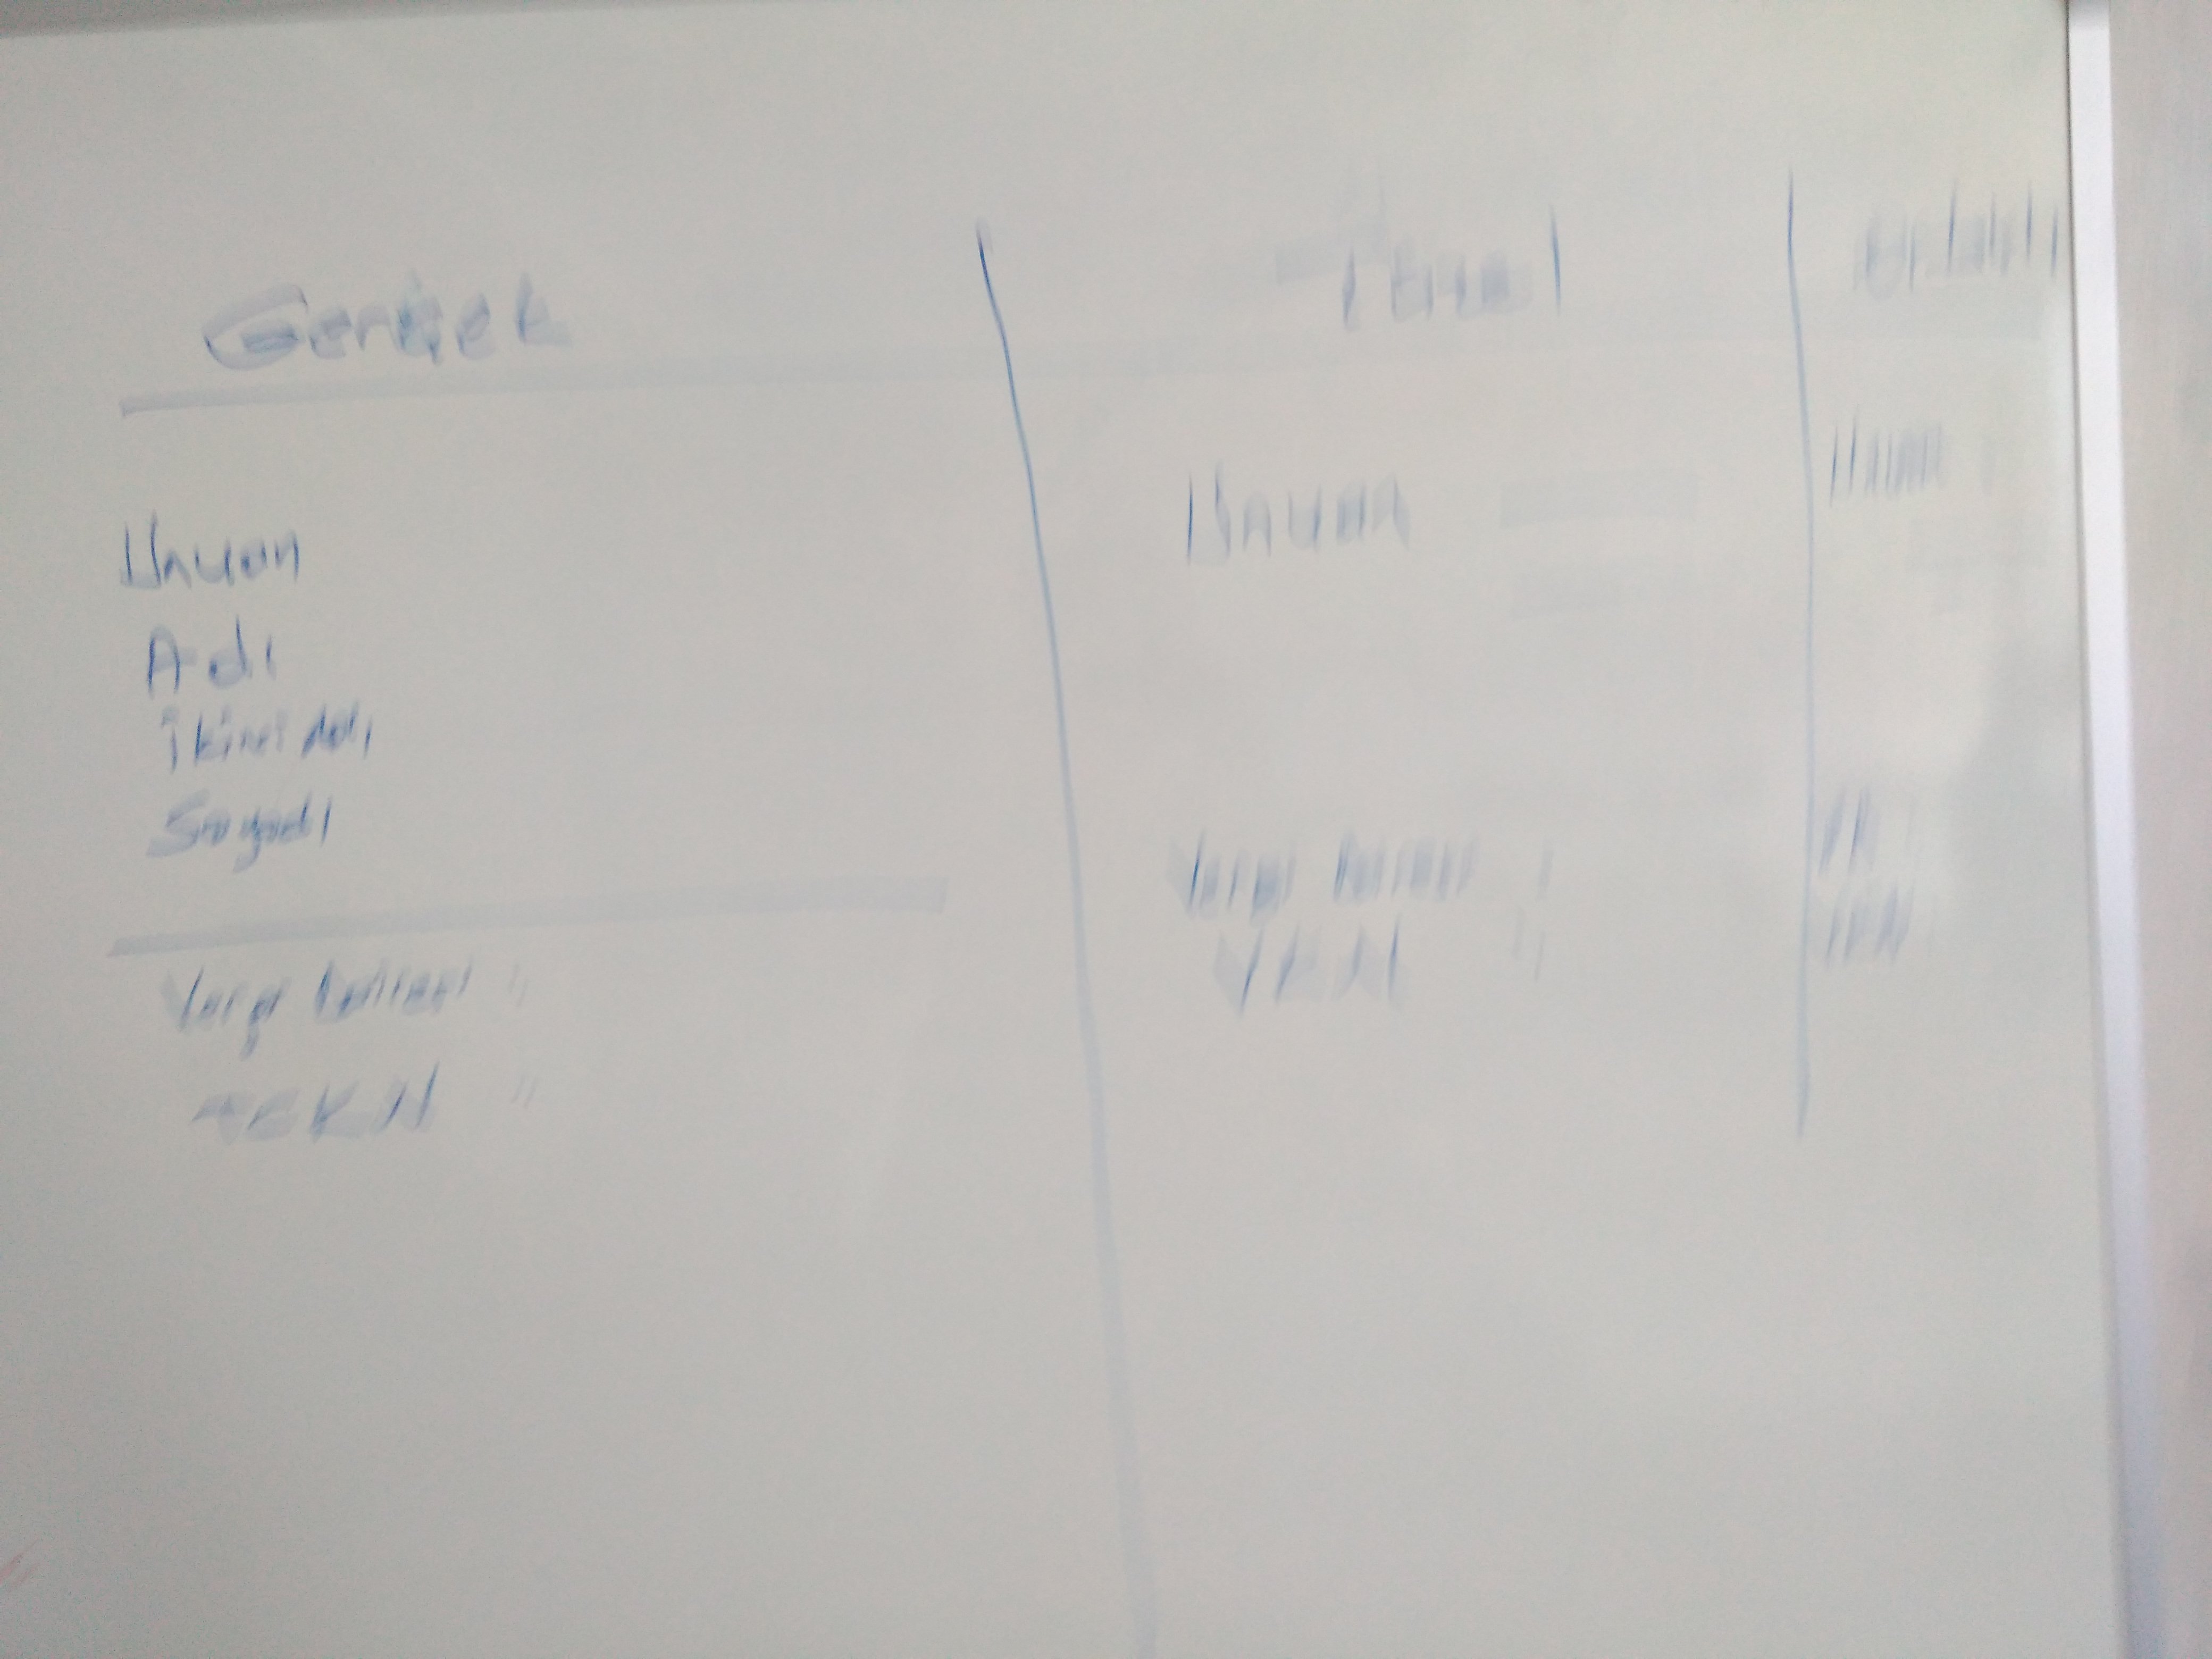 Gerçek
Unvan
Adı
İkinci Adı
Soyadı
Vergi Dairesi "
TCKN "
Tüzel
Unvan
Vergi Dairesi "
VKN "
Unvan
VD
VKN